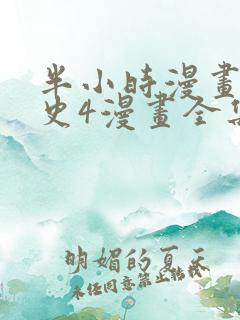 半小時漫畫
史4漫畫全集
明媚的夏天
未经同意禁止转载